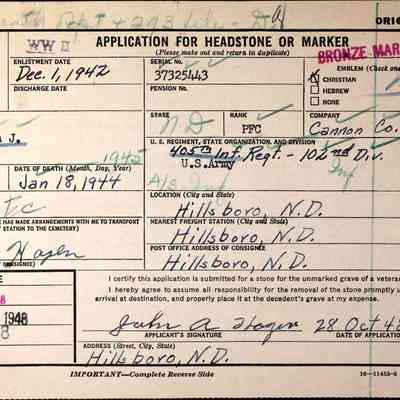 WW II
APPLICATION FOR HEADSTONE OR MARKER
(Please make out and return in duplicate)
ORIG
BRONZE MAR
ENLISTMENT DATE
Dec. 1, 1942
SERIAL No.
37325443
EMBLEM (Check one
X CHRISTIAN
HEBREW
NONE
DISCHARGE DATE
PENSION No.
STATE
ND
RANK
PFC
COMPANY
Cannon Co.
J.
U. S. REGIMENT, STATE ORGANIZATION, AND DIVISION
405th Inf. Regt. - 102nd Div.
U.S. Army
Inf
DATE OF DEATH (Month, Day, Year)
Jan 18, 1944
LOCATION (City and State)
Hillsboro, N.D.
NEAREST FREIGHT STATION (City and State)
Hillsboro, N.D.
HAS MADE ARRANGEMENTS WITH ME TO TRANSPORT
STATION TO THE CEMETERY)
POST OFFICE ADDRESS OF CONSIGNEE
Hagen
Hillsboro, N.D.
I certify this application is submitted for a stone for the unmarked grave of a veteran
I hereby agree to assume all responsibility for the removal of the stone promptly u
arrival at destination, and properly place it at the decedent's grave at my expense.
1948
8
John A Hagen 28 Oct 48
APPLICANT'S SIGNATURE
DATE OF APPLICATION
ADDRESS (Street, City, State)
Hillsboro, N.D.
IMPORTANT—Complete Reverse Side
16-11453-6